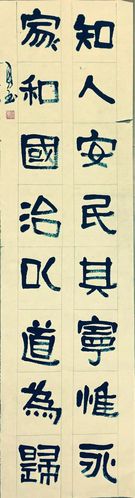 知人安民其寧惟永
家和國治以道為歸